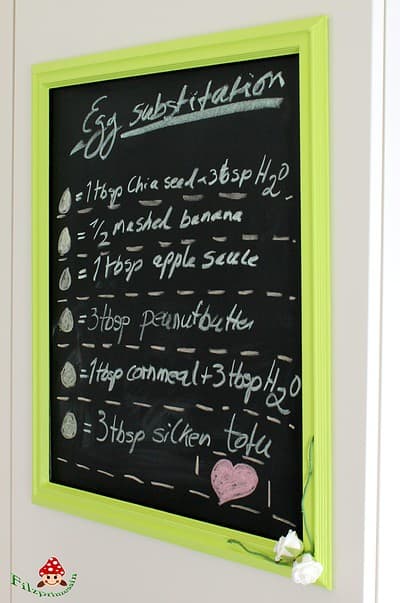 Egg substitution
= 1 tbsp Chia seed + 3 tbsp H2O
= 1/2 mashed banana
= 1 tbsp apple sauce
= 3 tbsp peanutbutter
= 1 tbsp cornmeal + 3 tbsp H2O
= 3 tbsp silken tofu
Filzprinzessin